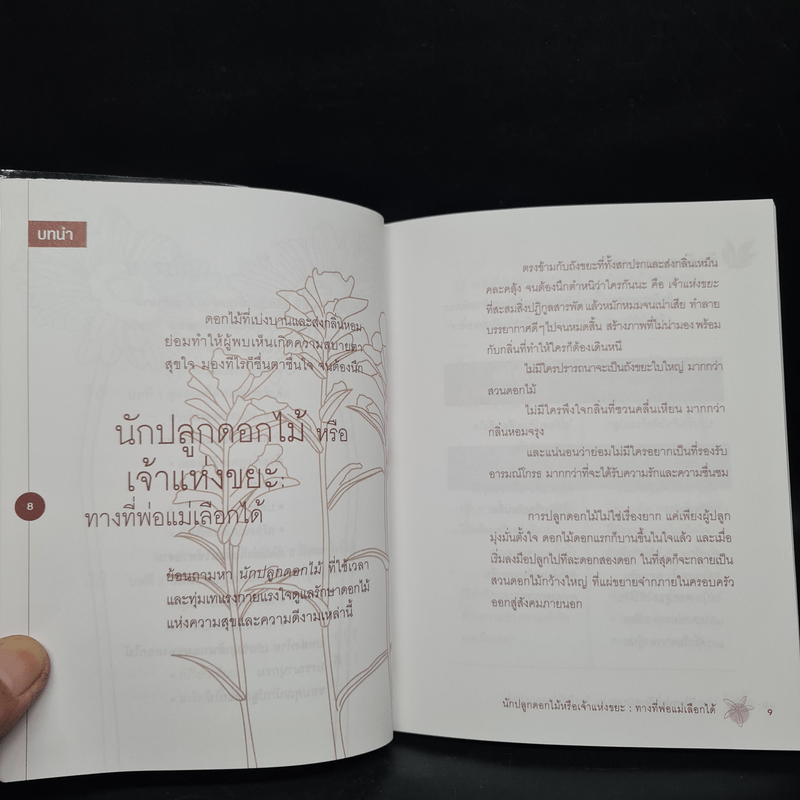 บทนำ
ดอกไม้ที่เบ่งบานและส่งกลิ่นหอม
ย่อมทำให้ผู้พบเห็นเกิดความสบายตา
สุขใจ มองทีไรก็ชื่นตาชื่นใจ จนต้องนึก
นักปลูกดอกไม้ หรือ
เจ้าแห่งขยะ:
ทางที่พ่อแม่เลือกได้
8
ย้อนถามหา นักปลูกดอกไม้ ที่ใช้เวลา
และทุ่มเทแรงกายแรงใจดูแลรักษาดอกไม้
แห่งความสุขและความดีงามเหล่านี้
ตรงข้ามกับถังขยะที่ทั้งสกปรกและส่งกลิ่นเหม็น
คละคลุ้ง จนต้องนึกตำหนิว่าใครกันนะ คือ เจ้าแห่งขยะ
ที่สะสมสิ่งปฏิกูลสารพัด แล้วหมักหมมจนเน่าเสีย ทำลาย
บรรยากาศดีๆ ไปจนหมดสิ้น สร้างภาพที่ไม่น่ามอง พร้อม
กับกลิ่นที่ทำให้ใครก็ต้องเดินหนี
ไม่มีใครปรารถนาจะเป็นถังขยะใบใหญ่ มากกว่า
สวนดอกไม้
ไม่มีใครพึงใจกลิ่นที่ชวนคลื่นเหียน มากกว่า
กลิ่นหอมจรุง
และแน่นอนว่าย่อมไม่มีใครอยากเป็นที่รองรับ
อารมณ์โกรธ มากกว่าที่จะได้รับความรักและความชื่นชม
การปลูกดอกไม้ไม่ใช่เรื่องยาก แค่เพียงผู้ปลูก
มุ่งมั่นตั้งใจ ดอกไม้ดอกแรกก็บานขึ้นในใจแล้ว และเมื่อ
เริ่มลงมือปลูกไปทีละดอกสองดอก ในที่สุดก็จะกลายเป็น
สวนดอกไม้กว้างใหญ่ ที่แผ่ขยายจากภายในครอบครัว
ออกสู่สังคมภายนอก
นักปลูกดอกไม้หรือเจ้าแห่งขยะ : ทางที่พ่อแม่เลือกได้
9